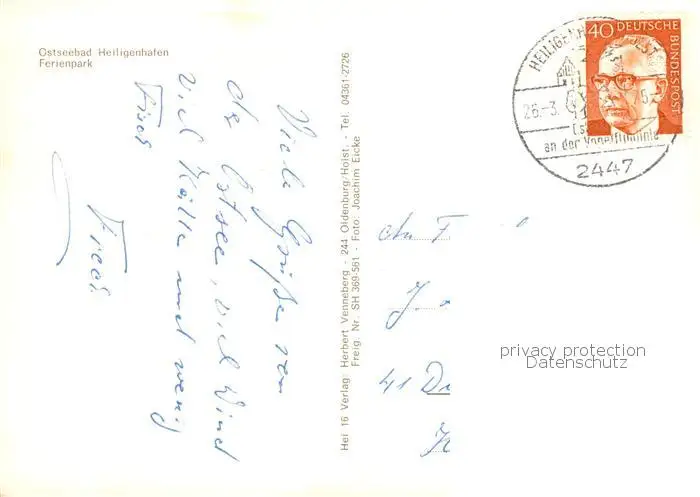 Ostseebad Heiligenhafen
Ferienpark
Viele Grüße von
der Ostsee, viel Wind
viel Kälte und wenig
Fisch
Fred.
Hei 16 Verlag: Herbert Venneberg - 244 Oldenburg/Holst. - Tel. 04361-2726
Freig. Nr. SH 369-561 - Foto: Joachim Eicke
40 DEUTSCHE
BUNDESPOST
HEILIGENH
26.-3.
an der Vogelfluglinie
2447
An F
41 Du
privacy protection
Datenschutz